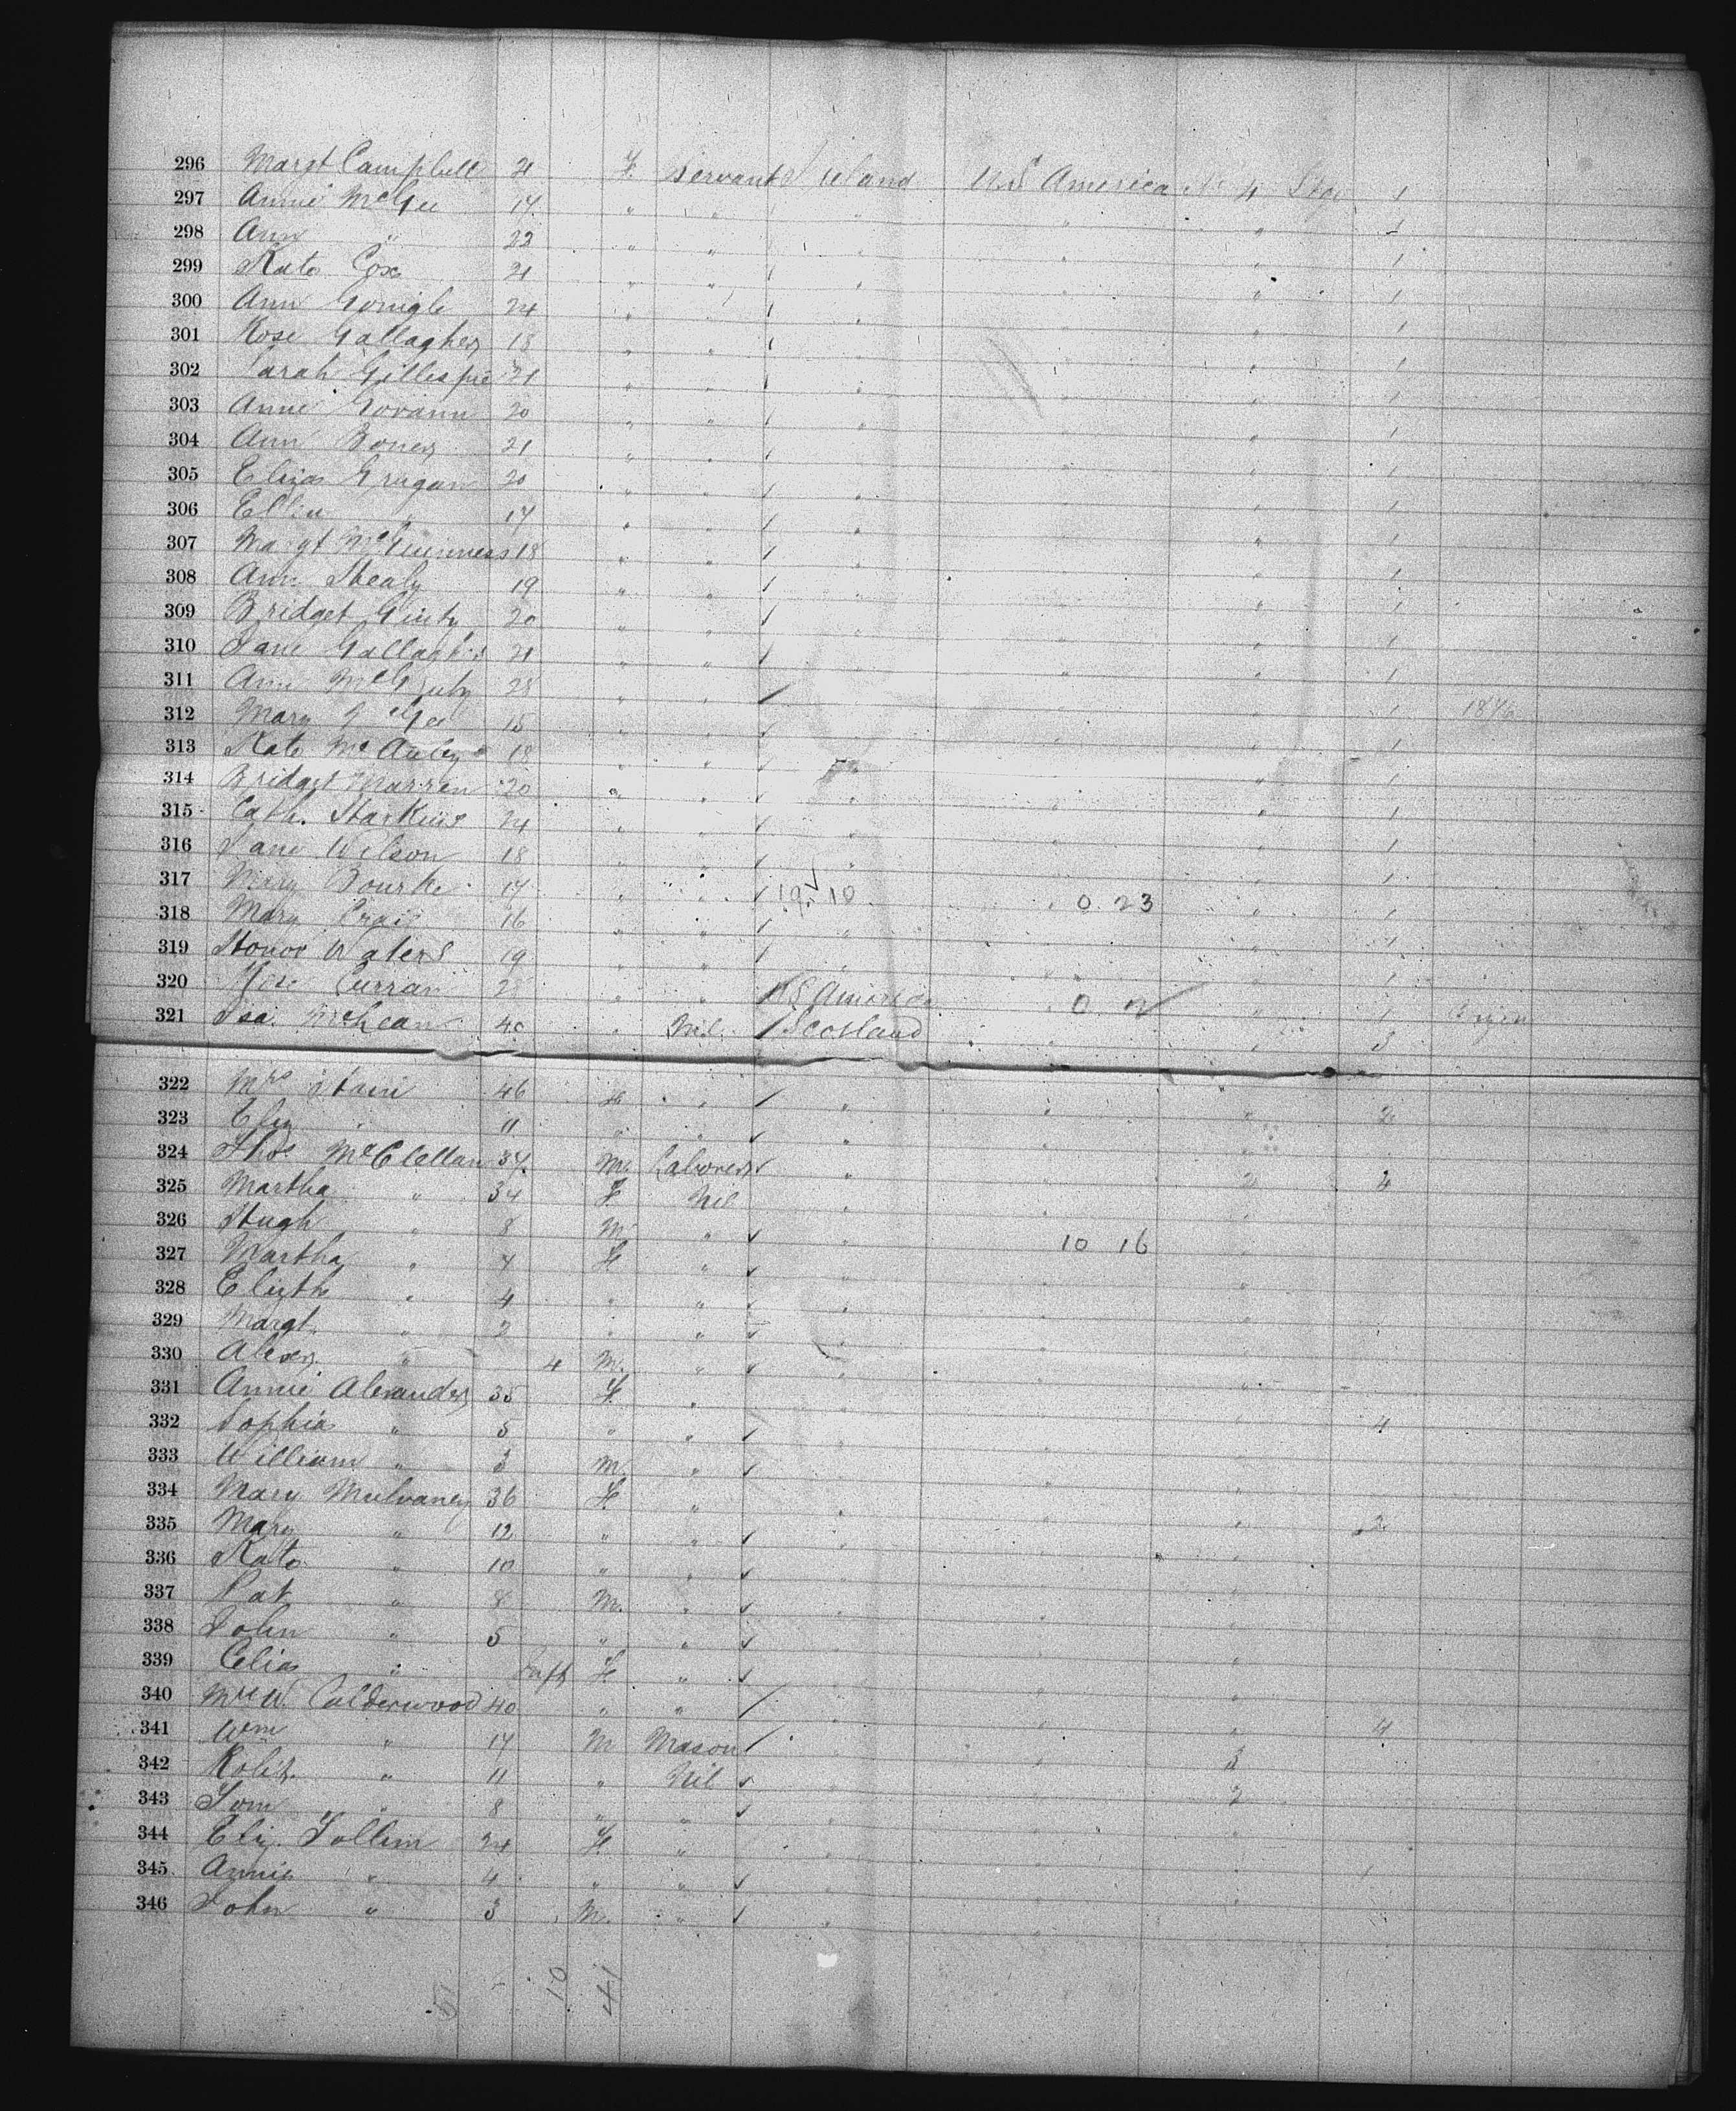 296 Margt Campbell 21 F. Servant Ireland U.S America No 4 Stge 1
297 Annie McGee 17 " " " " " 1
298 Ann " 22 " " " " " 1
299 Kate Cox 21 " " " " " 1
300 Ann Gonigle 24 " " " " " 1
301 Rose Gallagher 18 " " " " " 1
302 Sarah Gillespie 21 " " " " " 1
303 Anne 20 " " " " " 1
304 Ann Boner 21 " " " " " 1
305 Eliza Grugan 20 " " " " " 1
306 Ellen " 17 " " " " " 1
307 Margt McGuinness 18 " " " " " 1
308 Ann Shealy 19 " " " " " 1
309 Bridget Ginty 20 " " " " " 1
310 Jane Gallagher 21 " " " " " 1
311 Ann 28 " " " " " 1
312 Mary 15 " " " " " 1
313 Kate McAuley 18 " " " " " 1
314 Bridget Marren 20 " " " " " 1
315 Cath. Harkins 24 " " " " " 1
316 Jane Wilson 18 " " " " " 1
317 Mary Bourke 17 " " 19 10 " 0 23 " 1
318 Mary Craig 16 " " " " " 1
319 Honor Waters 19 " " " " " 1
320 Rose Curran 28 " " U.S America " 0 2 " 1
321 Isa. McLean 40 " Nil Scotland " " 3
322 Mrs 46 F. " " " " 2
323 Eliz " 11 " " " " "
324 Thos. McClellan 37 M. Laborer " " 2 2
325 Martha " 34 F Nil " " "
326 Hugh " 8 M. " " 10 16 "
327 Martha " 7 F " " " "
328 Elizth " 4 " " " " "
329 Margt. " 2 " " " " "
330 Alexr. " 4 M. " " " "
331 Annie Alexander 35 F. " " " " 4
332 Sophia " 5 " " " " "
333 William " 3 M. " " " "
334 Mary Mulvaney 36 F. " " " " 2
335 Mary " 12 " " " " "
336 Kate " 10 " " " " "
337 Pat " 8 M. " " " "
338 John " 5 " " " " "
339 Celia " Inft F. " " " "
340 Mrs W. Calderwood 40 " " " " " 4
341 Wm " 17 M Mason " " 3
342 Robt. " 11 " Nil " " 2
343 Tom " 8 " " " " "
344 Eliz. 24 F. " " " " 1
345 Annie " 4 " " " " "
346 John " 3 M. " " " "
51 10 41